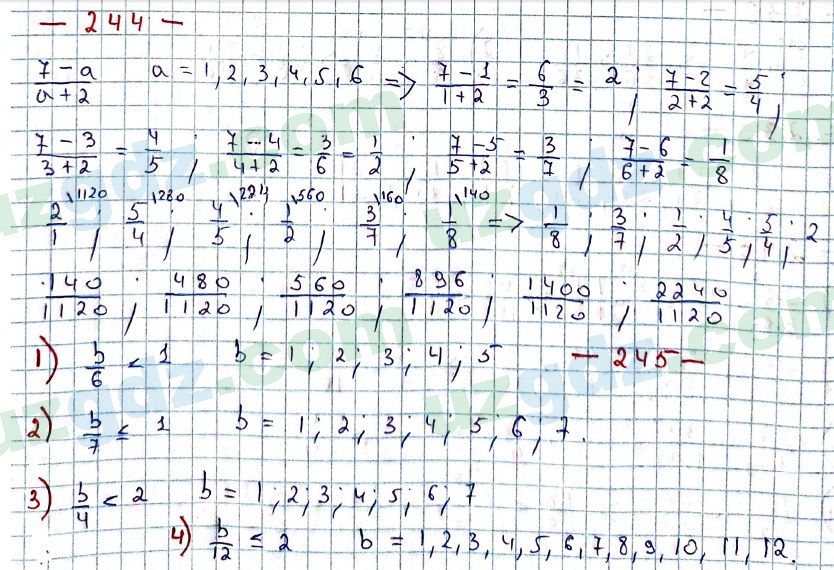 — 244 —
(7 − a)/(a + 2) a = 1, 2, 3, 4, 5, 6 => (7 − 1)/(1 + 2) = 6/3 = 2 ; (7 − 2)/(2 + 2) = 5/4 ;
(7 − 3)/(3 + 2) = 4/5 ; (7 − 4)/(4 + 2) = 3/6 = 1/2 ; (7 − 5)/(5 + 2) = 3/7 ; (7 − 6)/(6 + 2) = 1/8
2/1 \1120 ; 5/4 \280 ; 4/5 \224 ; 1/2 \560 ; 3/7 \160 ; 1/8 \140 => 1/8 ; 3/7 ; 1/2 ; 4/5 ; 5/4 ; 2
140/1120 ; 480/1120 ; 560/1120 ; 896/1120 ; 1400/1120 ; 2240/1120
1) b/6 < 1 b = 1 ; 2 ; 3 ; 4 ; 5 — 245 —
2) b/7 ≤ 1 b = 1 ; 2 ; 3 ; 4 ; 5 ; 6 ; 7.
3) b/4 < 2 b = 1 ; 2 ; 3 ; 4 ; 5 ; 6 ; 7
4) b/12 ≤ 2 b = 1, 2, 3, 4, 5, 6, 7, 8, 9, 10, 11, 12.
uzgdz.com